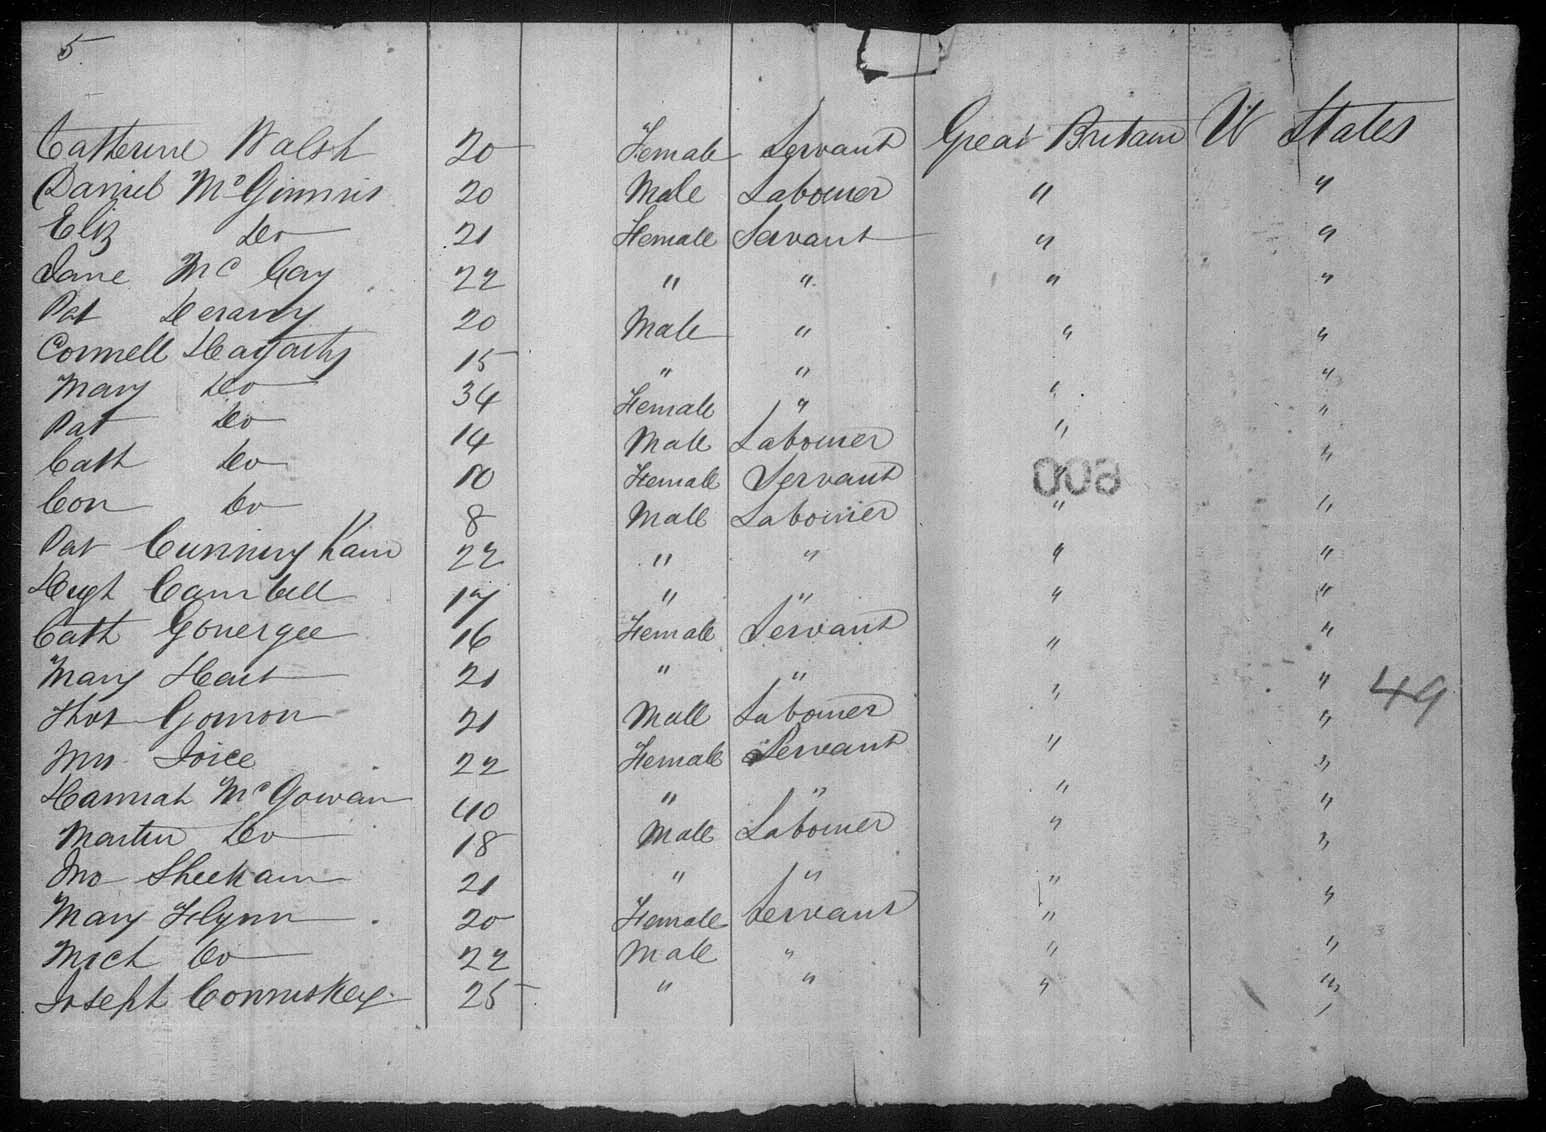 5
Catherine Walsh 20 Female Servant Great Britain U States
Daniel McGinnis 20 Male Labourer " "
Eliz Do 21 Female Servant " "
Jane McCay 22 " " " "
Pat 20 Male " " "
Cornell Hagarty 15 " " " "
Mary Do 34 Female " " "
Pat Do 14 Male Labourer " "
Cath Do 10 Female Servant " "
Con Do 8 Male Labourer " "
Pat Cunningham 22 " " " "
Hugh Cambell 17 " " " "
Cath 16 Female Servant " "
Mary Hart 21 " " " "
Thos Gorman 21 Male Labourer " "
Mrs Joice 22 Female Servant " "
Hannah McGowan 40 " " " "
Martin Do 18 Male Labourer " "
Jno Sheehan 21 " " " "
Mary Flynn 20 Female Servant " "
Mich Do 22 Male " " "
Joseph Conniskey 25 " " " "
49